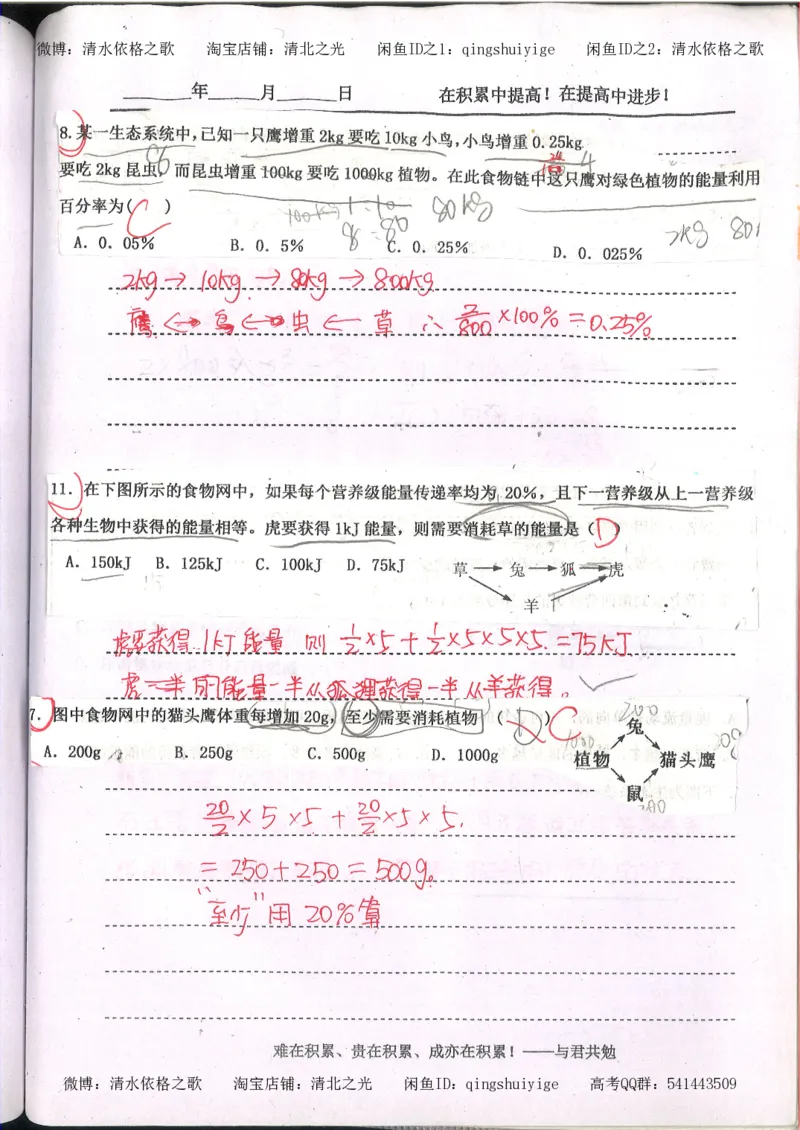 微博：清水依格之歌 淘宝店铺：清北之光 闲鱼ID之1：qingshuiyige 闲鱼ID之2：清水依格之歌
年 月 日 在积累中提高！在提高中进步！
8.某一生态系统中，已知一只鹰增重2kg要吃10kg小鸟，小鸟增重0.25kg
要吃2kg昆虫，而昆虫增重100kg要吃1000kg植物。在此食物链中这只鹰对绿色植物的能量利用
百分率为( C )
100kg 1=10 80kg
8=80
2kg
A．0．05% B．0．5% C．0．25% D．0．025%
2kg→10kg→80kg→800kg
鹰 ↔ 鸟 ↔ 虫 ← 草 ∴ 2/800 ×100% =0.25%
11．在下图所示的食物网中，如果每个营养级能量传递率均为 20%，且下一营养级从上一营养级
各种生物中获得的能量相等。虎要获得1kJ能量，则需要消耗草的能量是（ D ）
A．150kJ B．125kJ C．100kJ D．75kJ
草 → 兔 → 狐 → 虎
羊
虎要获得1KJ能量 则 1/2×5+1/2×5×5×5=75KJ
虎一半的能量一半从狐狸获得一半从羊获得。
7．图中食物网中的猫头鹰体重每增加20g，至少需要消耗植物 （ D ） C
A．200g B．250g C．500g D．1000g
200
兔
1000
植物 猫头鹰
鼠
200
20/2×5×5+20/2×5×5.
=250+250=500g。
“至少”用20%算
难在积累、贵在积累、成亦在积累！——与君共勉
微博：清水依格之歌 淘宝店铺：清北之光 闲鱼ID：qingshuiyige 高考QQ群：541443509